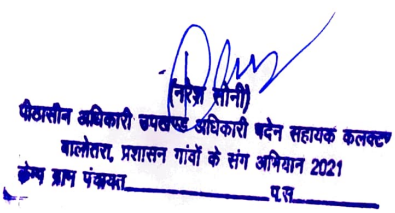 (नरेश सोनी)
पीठासीन अधिकारी उपखण्ड अधिकारी पदेन सहायक कलक्टर
बालोतरा, प्रशासन गांवों के संग अभियान 2021
कैम्प ग्राम पंचायत____________प.स.____________